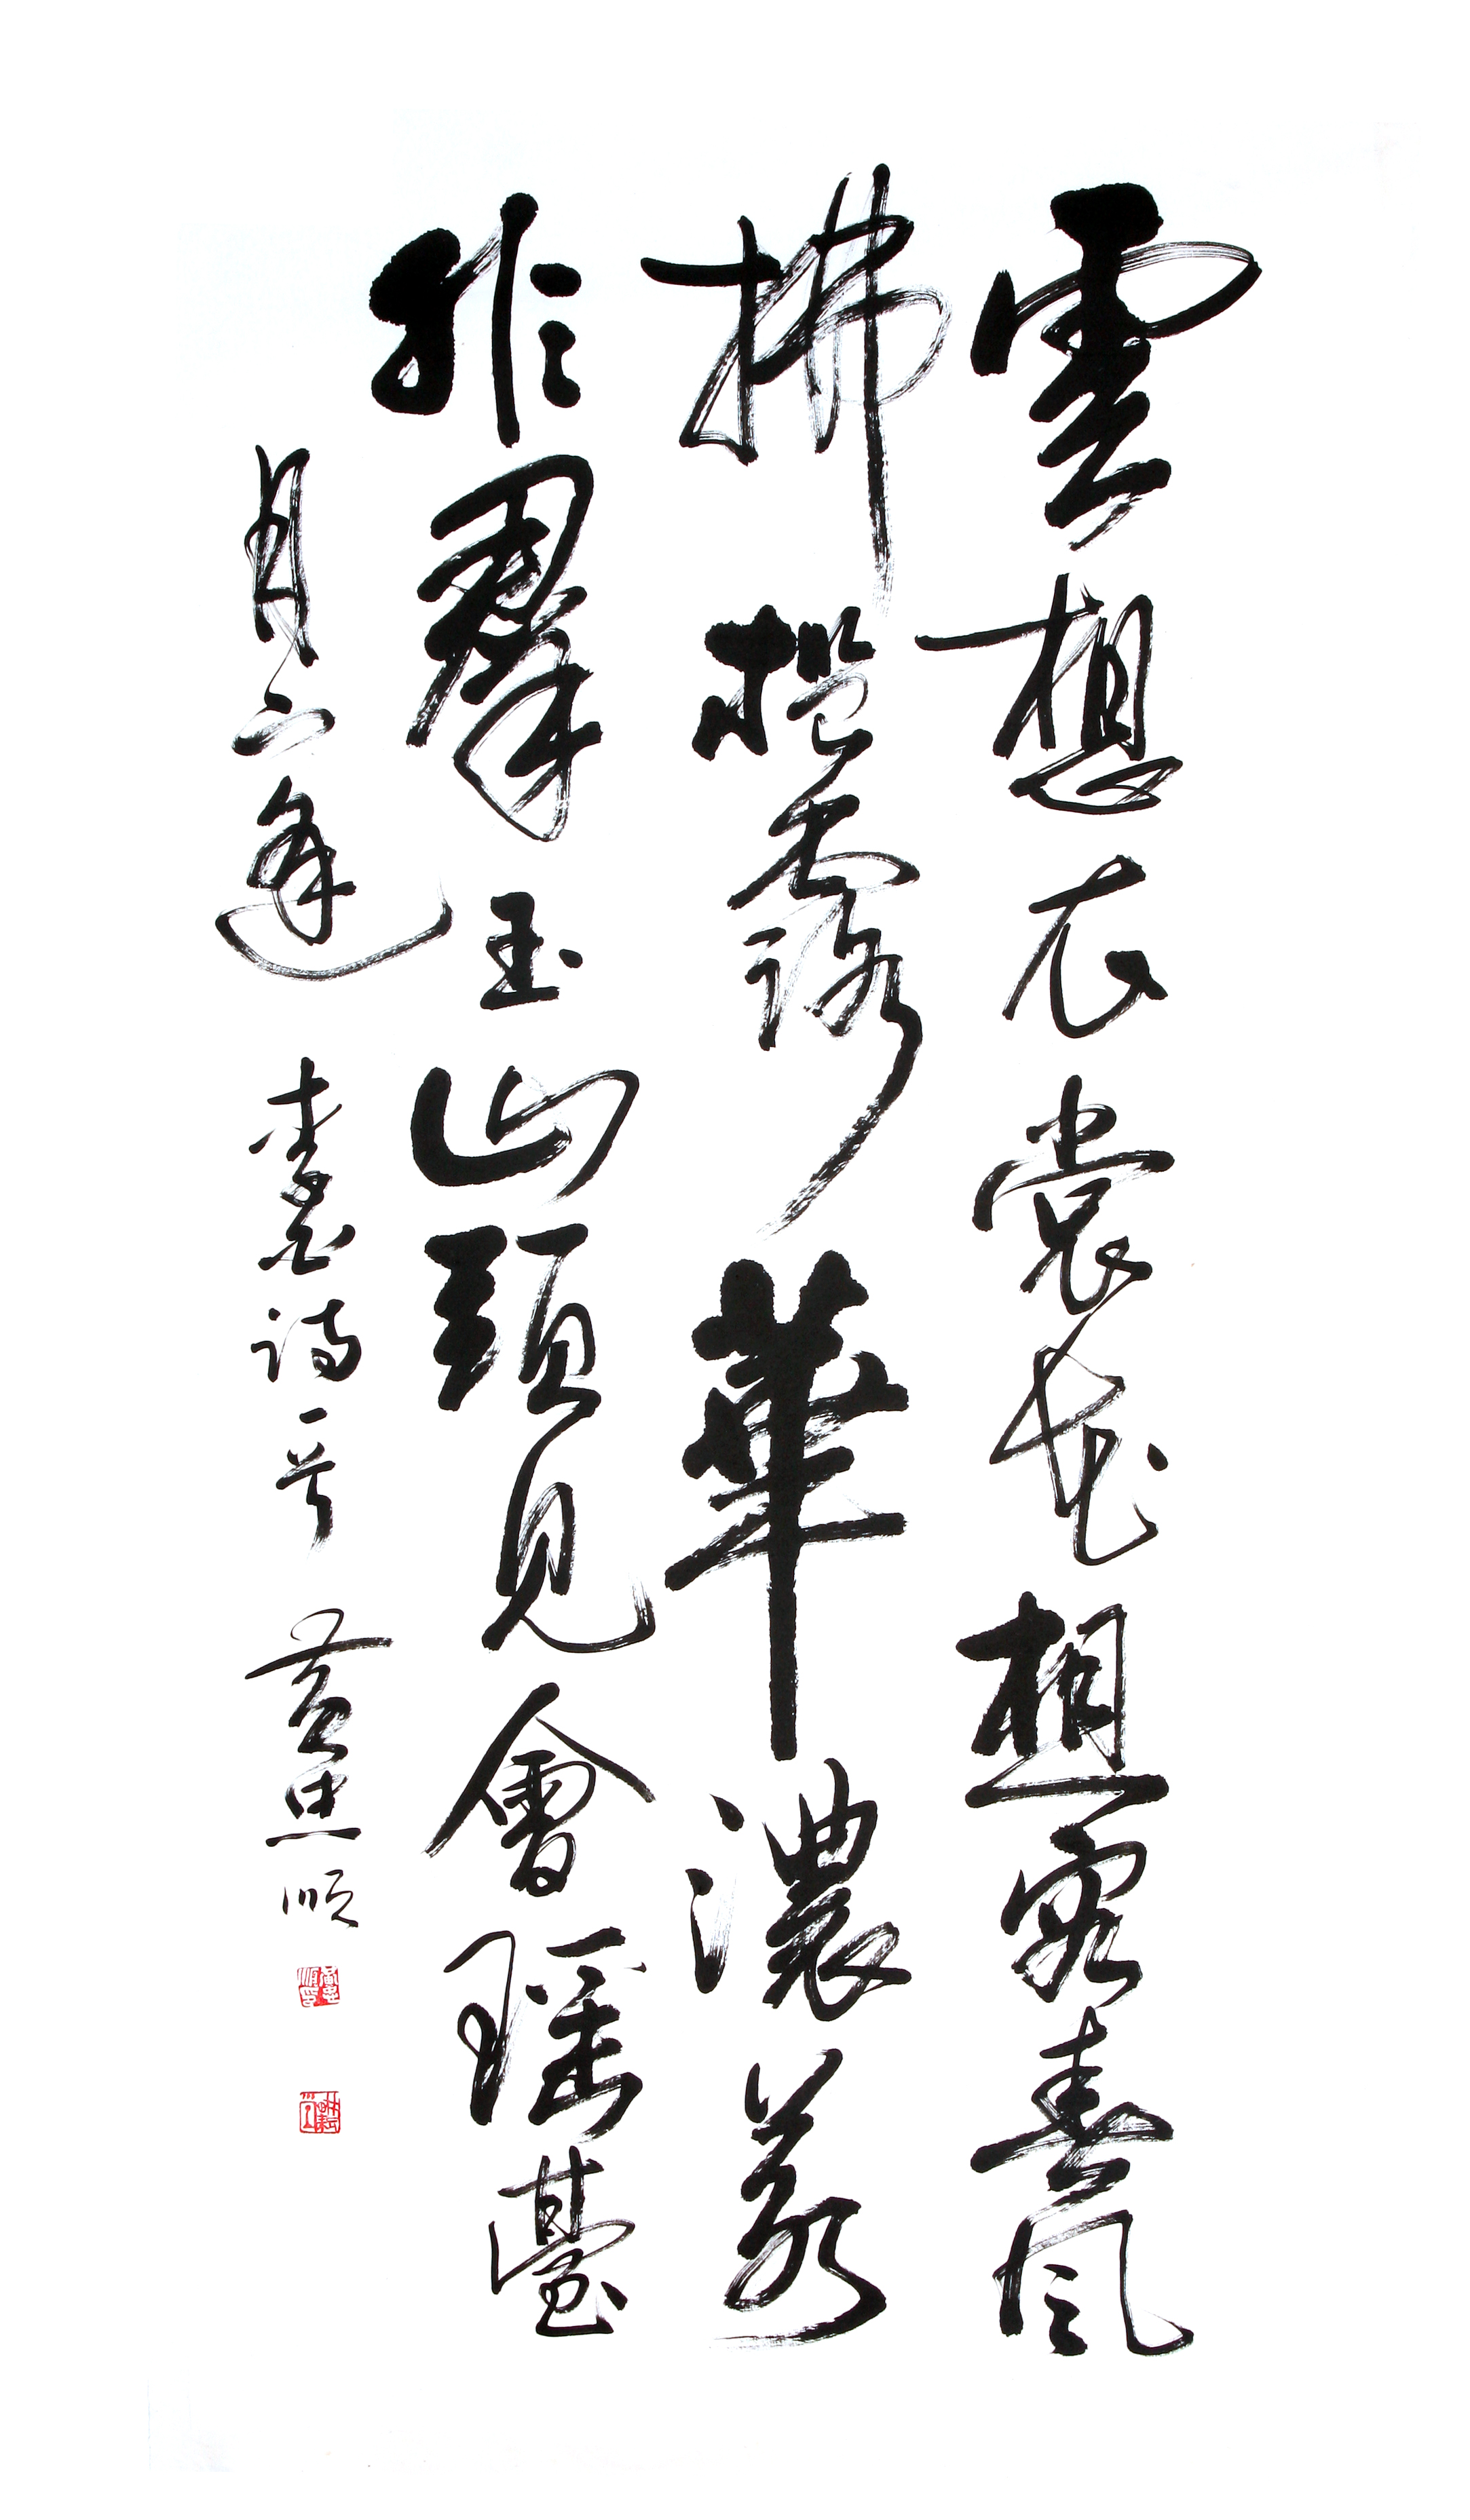 雲想衣裳花想容春風
拂檻露華濃若
非羣玉山頭見會瑤臺
月下逢 詩一首 黃 順